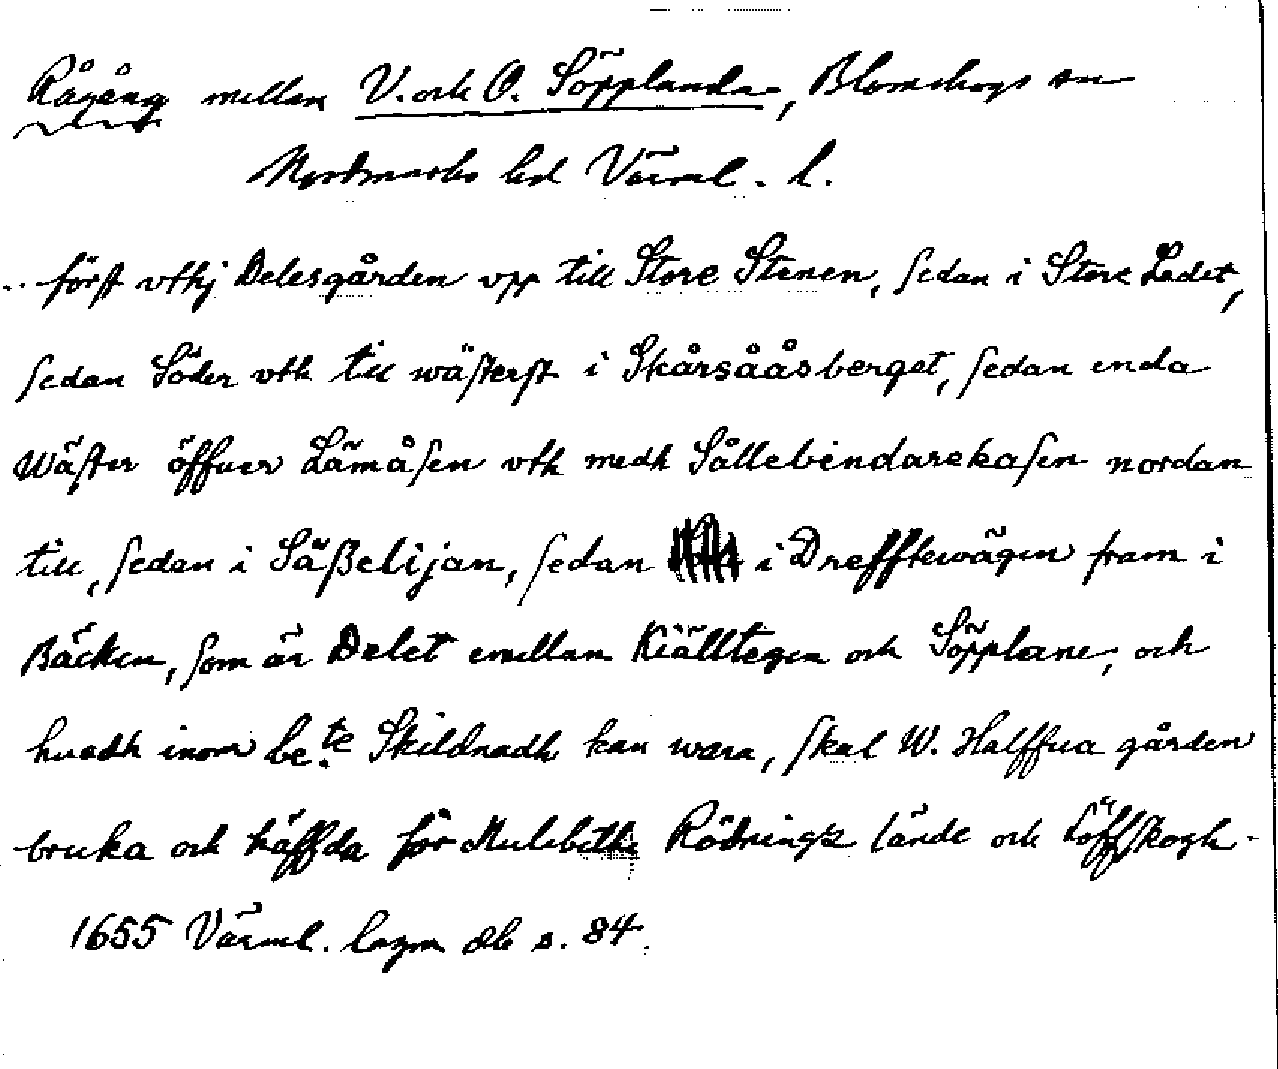 Rågång mellan V. och Ö. Söpplanda, Blomskogs sn
Nordmarks hd Värml. l.
.. först vthj Delesgården vpp till Store Stenen, sedan i Store Ledet,
sedan Söder vth till wästerst i Skårsååsberget, sedan enda
Wäster öffuer Lämåsen vth medh Sållebindarekasen nordan
till, sedan i Säßelijan, sedan i Drefftewägen fram i
Bäcken, som är Delet emellan Kiälltegen och Söpplane, och
huadh inom be:te Skildnadh kan wara, skal W. Halffua gården
bruka och häffda för Mulebethe Rödningz lände och Löffskogh.
1655 Värml. lagm db s. 84.